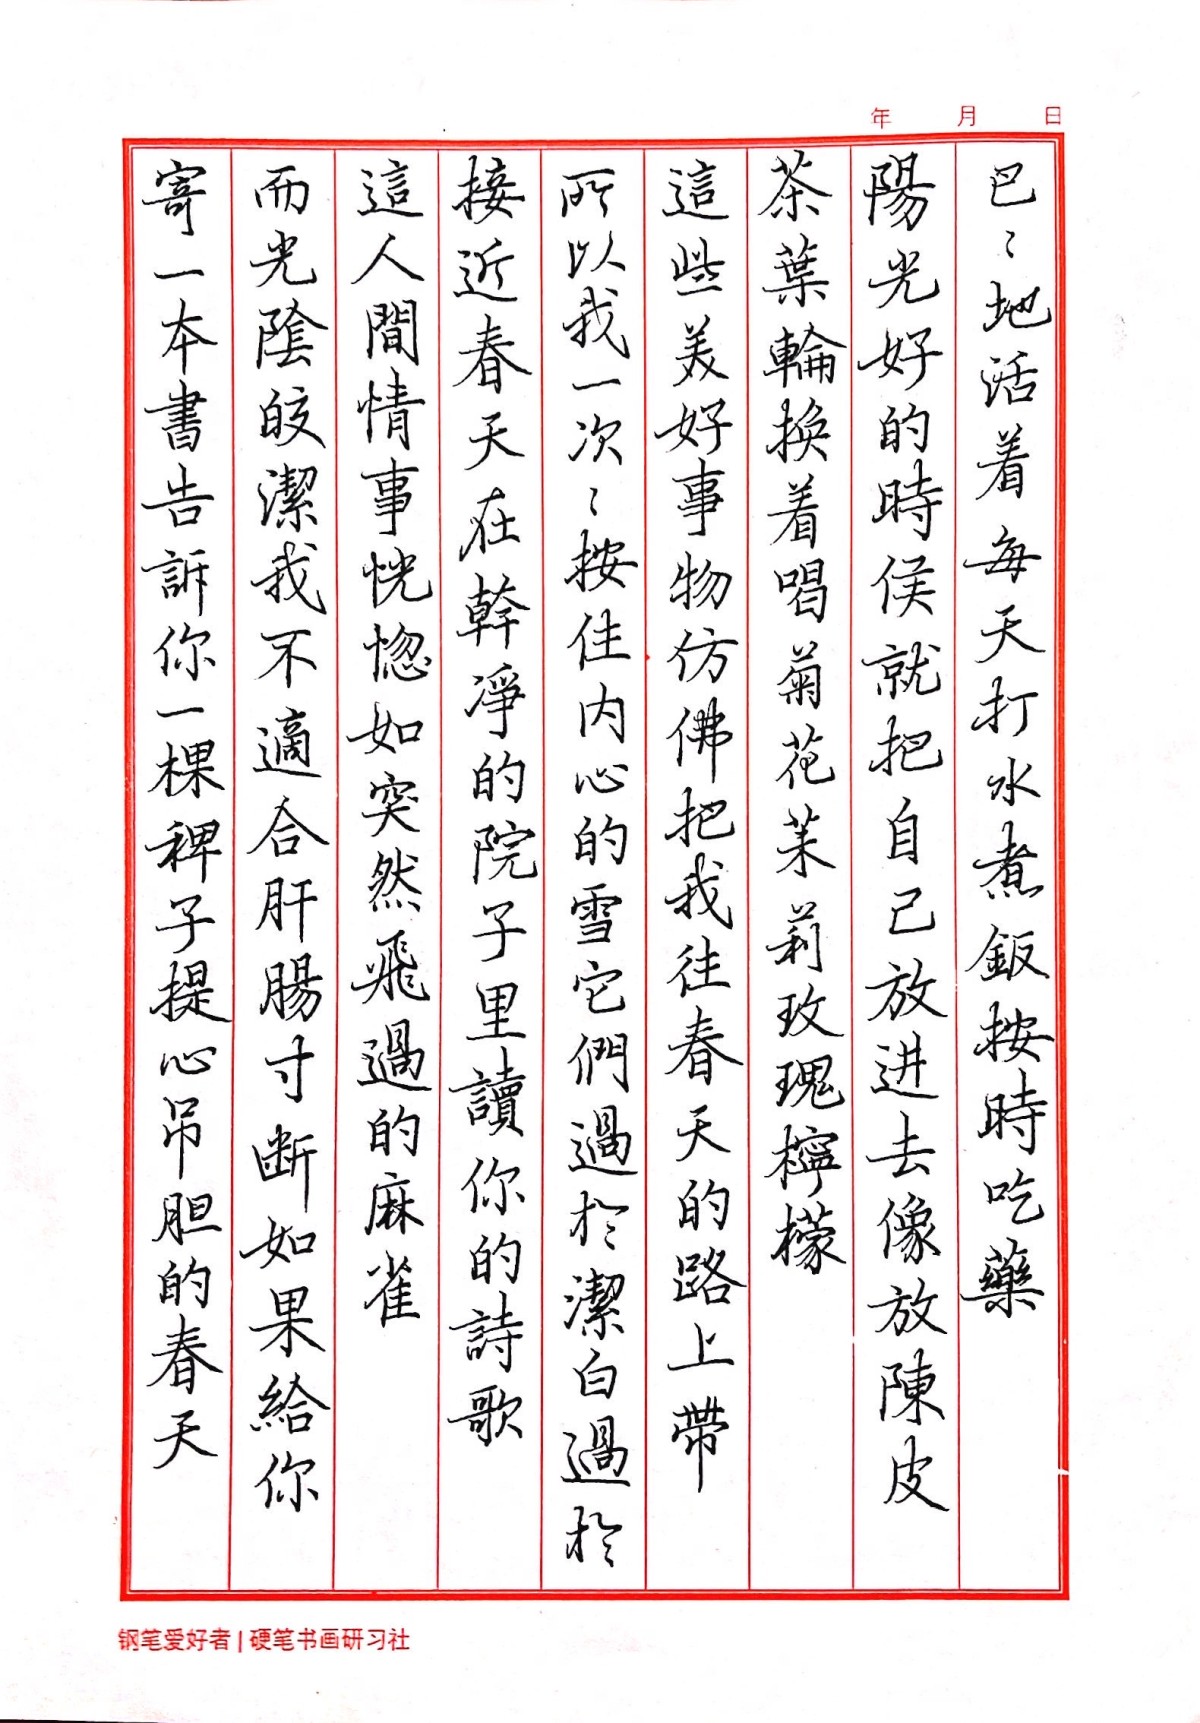 年 月 日
巴〻地活着每天打水煮飯按時吃藥
陽光好的時侯就把自己放进去像放陳皮
茶葉輪換着喝菊花茉莉玫瑰檸檬
這些美好事物仿佛把我往春天的路上帶
所以我一次〻按住内心的雪它們過於潔白過於
接近春天在幹凈的院子里讀你的詩歌
這人間情事恍惚如突然飛過的麻雀
而光陰皎潔我不適合肝腸寸断如果給你
寄一本書告訴你一棵稗子提心吊胆的春天
钢笔爱好者 | 硬笔书画研习社